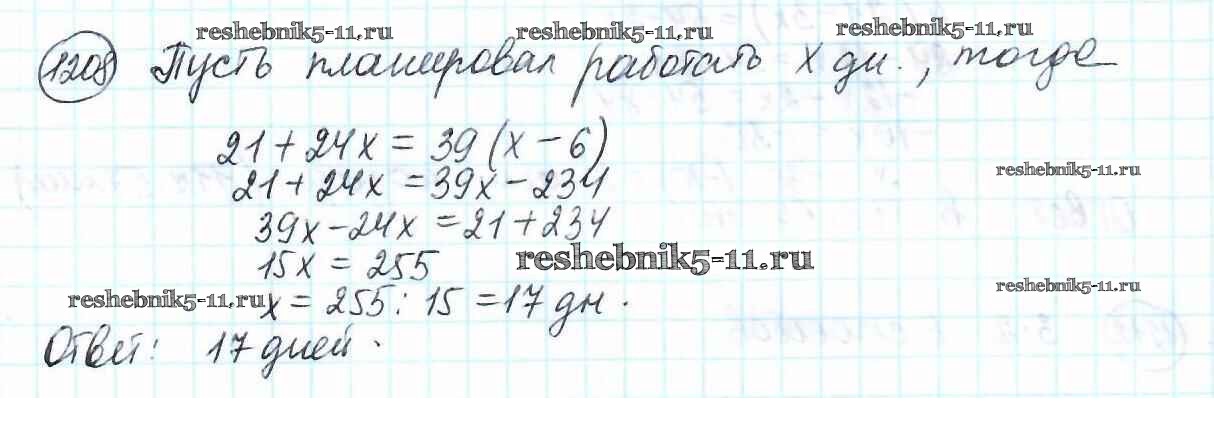 reshebnik5-11.ru reshebnik5-11.ru reshebnik5-11.ru
1208 Пусть планировал работать х дн., тогда
21 + 24х = 39 (х - 6)
21 + 24х = 39х - 234
reshebnik5-11.ru
39х - 24х = 21 + 234
15х = 255
reshebnik5-11.ru
reshebnik5-11.ru
х = 255 : 15 = 17 дн.
reshebnik5-11.ru
Ответ: 17 дней.